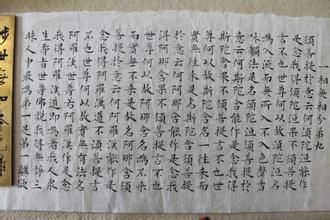 一相無相分第九
須菩提於意云何須陀洹能作
是念我得須陀洹果不須菩提
言不也世尊何以故須陀洹名
為入流而無所入不入色聲香
味觸法是名須陀洹須菩提於
意云何斯陀含能作是念我得
斯陀含果不須菩提言不也世
尊何以故斯陀含名一往來而
實無往來是名斯陀含須菩提
於意云何阿那含能作是念我
得阿那含果不須菩提言不也
世尊何以故阿那含名為不來
而實無不來是故名阿那含須
菩提於意云何阿羅漢能作是
念我得阿羅漢道不須菩提言
不也世尊何以故實無有法名
阿羅漢世尊若阿羅漢作是念
我得阿羅漢道即為著我人眾
生壽者世尊佛說我得無諍三
昧人中最為第一是第一離欲